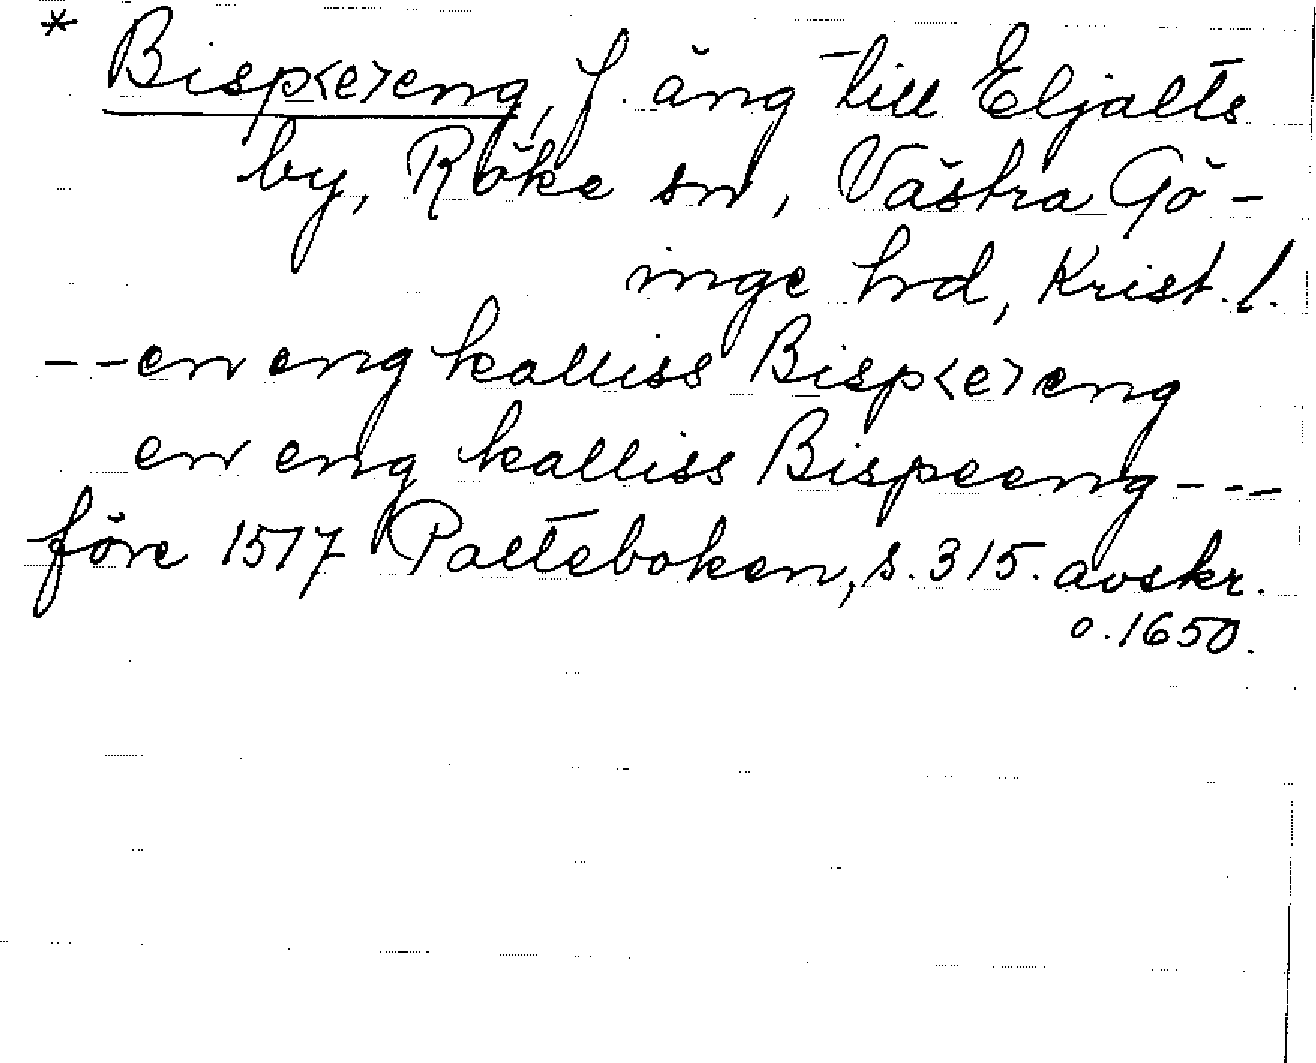 * Bisp<e>eng, f. äng till Eljalts
by, Röke sn, Västra Gö-
inge hrd, Krist. l.
--en eng kalliss Bisp<e>eng
en eng kalliss Bispeeng---
före 1517 Palteboken, s. 315. avskr.
o. 1650.